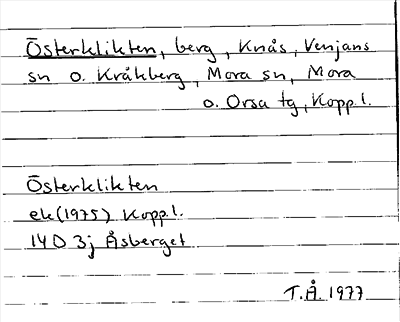 Österklikten, berg, Knås, Venjans
sn o. Kråkberg, Mora sn, Mora
o. Orsa tg, Kopp.l.
Österklikten
ek (1975) Kopp.l.
14D 3j Åsberget
T.Å. 1977